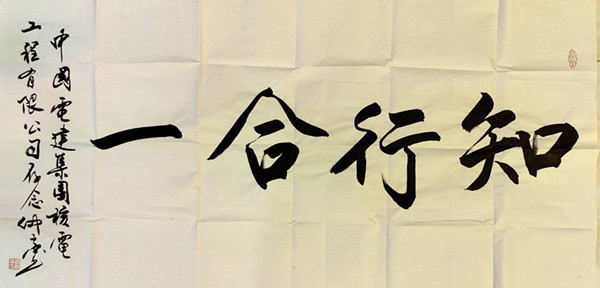 知行合一
中國電建集團核電
工程有限公司存念